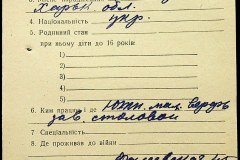 Харьк. обл.
4. Національність укр.
5. Родинний стан
при яному діти до 16 років:
1)
2)
3)
4)
5)
6. Ким працює і де Южн. маш.
зав столовой
7. Спеціальність
8. Де проживав до війни